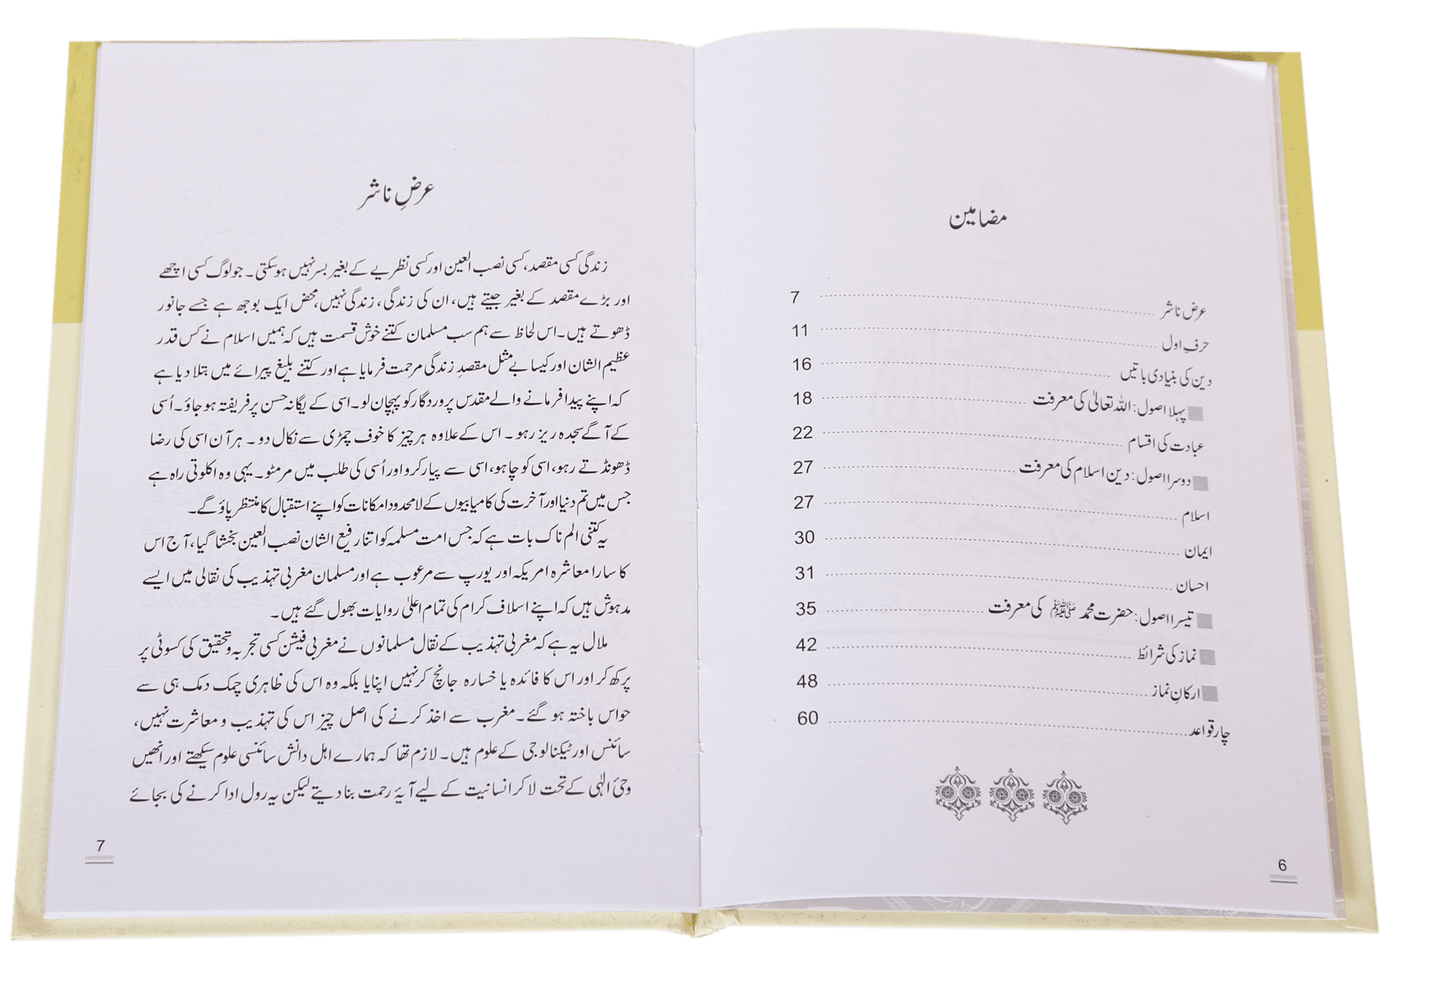 مضامین
عرض ناشر 7
حرفِ اول 11
دین کی بنیادی باتیں 16
پہلا اصول: اللہ تعالیٰ کی معرفت 18
عبادت کی اقسام 22
دوسرا اصول: دین اسلام کی معرفت 27
اسلام 27
ایمان 30
احسان 31
تیسرا اصول: حضرت محمد ﷺ کی معرفت 35
نماز کی شرائط 42
ارکانِ نماز 48
چار قواعد 60
6
عرضِ ناشر
زندگی کسی مقصد، کسی نصب العین اور کسی نظریے کے بغیر بسر نہیں ہو سکتی۔ جو لوگ کسی اچھے
اور بڑے مقصد کے بغیر جیتے ہیں، ان کی زندگی، زندگی نہیں، محض ایک بوجھ ہے جسے جانور
ڈھوتے ہیں۔ اس لحاظ سے ہم سب مسلمان کتنے خوش قسمت ہیں کہ ہمیں اسلام نے کس قدر
عظیم الشان اور کیسا بے مثل مقصدِ زندگی مرحمت فرمایا ہے اور کتنے بلیغ پیرائے میں بتلا دیا ہے
کہ اپنے پیدا فرمانے والے مقدس پروردگار کو پہچان لو۔ اسی کے یگانہ حسن پر فریفتہ ہو جاؤ۔ اُسی
کے آگے سجدہ ریز رہو۔ اس کے علاوہ ہر چیز کا خوف چمڑی سے نکال دو۔ ہر آن اسی کی رضا
ڈھونڈتے رہو، اسی کو چاہو، اسی سے پیار کرو اور اُسی کی طلب میں مر مٹو۔ یہی وہ اکلوتی راہ ہے
جس میں تم دنیا اور آخرت کی کامیابیوں کے لامحدود امکانات کو اپنے استقبال کا منتظر پاؤ گے۔
یہ کتنی الم ناک بات ہے کہ جس امت مسلمہ کو اتنا رفیع الشان نصب العین بخشا گیا، آج اس
کا سارا معاشرہ امریکہ اور یورپ سے مرعوب ہے اور مسلمان مغربی تہذیب کی نقالی میں ایسے
مدہوش ہیں کہ اپنے اسلاف کرام کی تمام اعلیٰ روایات بھول گئے ہیں۔
ملال یہ ہے کہ مغربی تہذیب کے نقال مسلمانوں نے مغربی فیشن کسی تجربہ و تحقیق کی کسوٹی پر
پرکھ کر اور اس کا فائدہ یا خسارہ جانچ کر نہیں اپنایا بلکہ وہ اس کی ظاہری چمک دمک ہی سے
حواس باختہ ہو گئے۔ مغرب سے اخذ کرنے کی اصل چیز اس کی تہذیب و معاشرت نہیں،
سائنس اور ٹیکنالوجی کے علوم ہیں۔ لازم تھا کہ ہمارے اہل دانش سائنسی علوم سیکھتے اور انھیں
وحیٔ الٰہی کے تحت لا کر انسانیت کے لیے آیۂ رحمت بنا دیتے لیکن یہ رول ادا کرنے کی بجائے
7